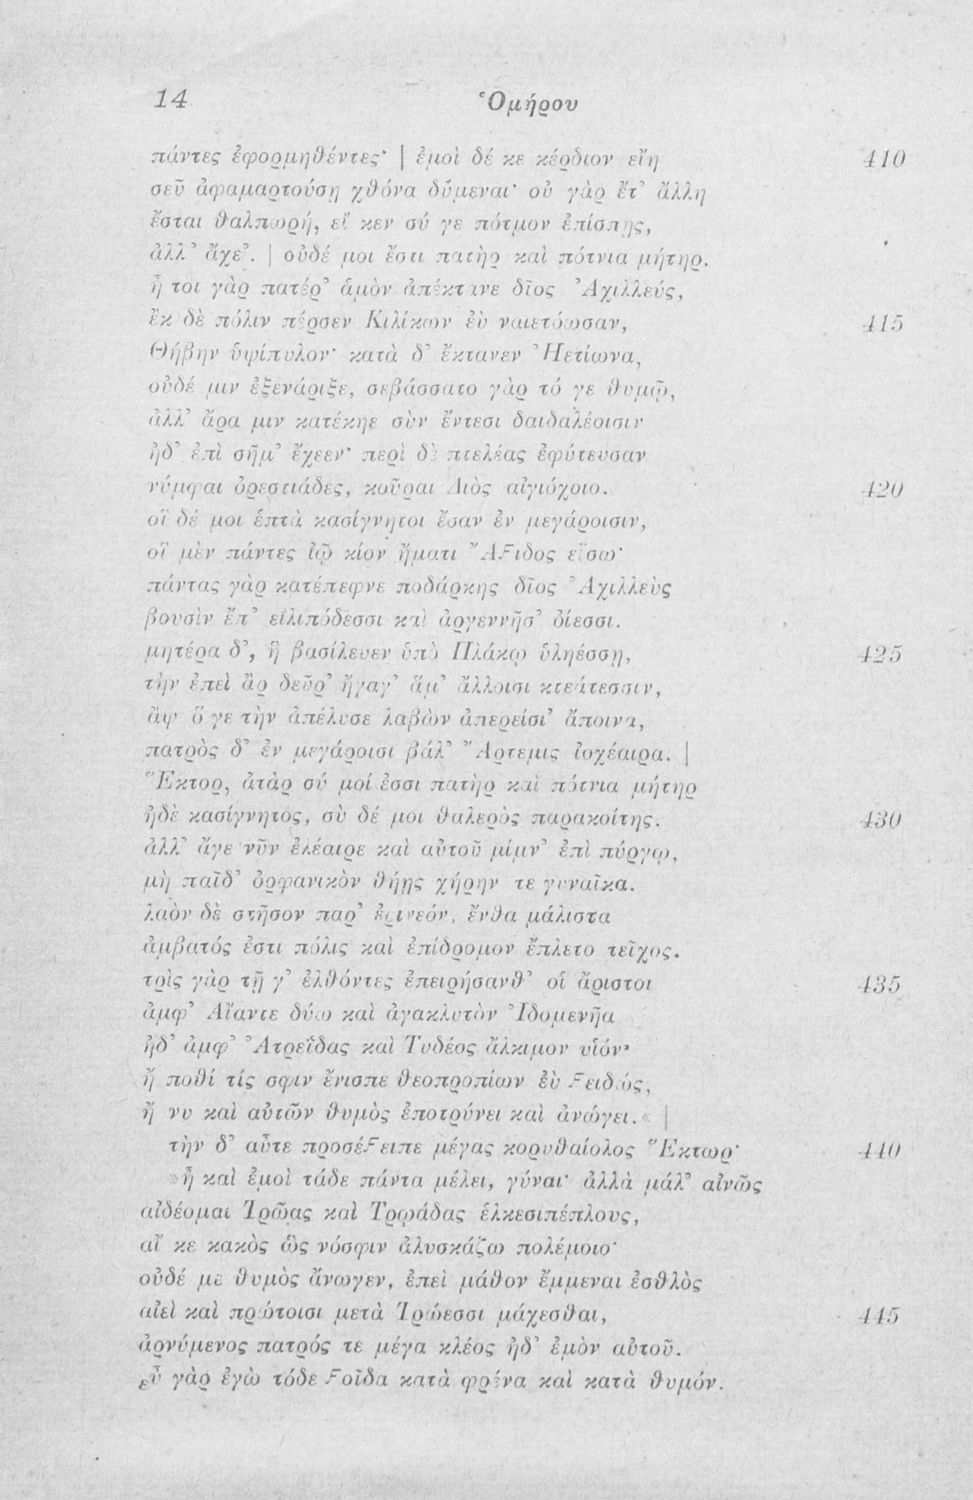 14 Ὁμήρου
πάντες ἐφορμηθέντες· | ἐμοὶ δέ κε κέρδιον εἴη 410
σεῦ ἀφαμαρτούσῃ χθόνα δύμεναι· οὐ γὰρ ἔτ’ ἄλλη
ἔσται θαλπωρή, εἴ κεν σύ γε πότμον ἐπίσπῃς,
ἀλλ’ ἄχε’. | οὐδέ μοι ἔστι πατὴρ καὶ πότνια μήτηρ.
ἦ τοι γὰρ πατέρ’ ἁμὸν ἀπέκτανε δῖος Ἀχιλλεύς,
ἐκ δὲ πόλιν πέρσεν Κιλίκων ἐὺ ναιετόωσαν, 415
Θήβην ὑψίπυλον· κατὰ δ’ ἔκτανεν Ἠετίωνα,
οὐδέ μιν ἐξενάριξε, σεβάσσατο γὰρ τό γε θυμῷ,
ἀλλ’ ἄρα μιν κατέκηε σὺν ἔντεσι δαιδαλέοισιν
ἠδ’ ἐπὶ σῆμ’ ἔχεεν· περὶ δὲ πτελέας ἐφύτευσαν
νύμφαι ὀρεστιάδες, κοῦραι Διὸς αἰγιόχοιο. 420
οἳ δέ μοι ἑπτὰ κασίγνητοι ἔσαν ἐν μεγάροισιν,
οἳ μὲν πάντες ἰῷ κίον ἤματι Ἄϝιδος εἴσω·
πάντας γὰρ κατέπεφνε ποδάρκης δῖος Ἀχιλλεὺς
βουσὶν ἔπ’ εἰλιπόδεσσι καὶ ἀργεννῇσ’ ὀίεσσι.
μητέρα δ’, ἣ βασίλευεν ὑπὸ Πλάκῳ ὑληέσσῃ, 425
τὴν ἐπεὶ ἂρ δεῦρ’ ἤγαγ’ ἅμ’ ἄλλοισι κτεάτεσσιν,
ἂψ ὅ γε τὴν ἀπέλυσε λαβὼν ἀπερείσι’ ἄποινα,
πατρὸς δ’ ἐν μεγάροισι βάλ’ Ἄρτεμις ἰοχέαιρα. |
Ἕκτορ, ἀτὰρ σύ μοί ἐσσι πατὴρ καὶ πότνια μήτηρ
ἠδὲ κασίγνητος, σὺ δέ μοι θαλερὸς παρακοίτης. 430
ἀλλ’ ἄγε νῦν ἐλέαιρε καὶ αὐτοῦ μίμν’ ἐπὶ πύργῳ,
μὴ παῖδ’ ὀρφανικὸν θήῃς χήρην τε γυναῖκα.
λαὸν δὲ στῆσον παρ’ ἐρινεόν, ἔνθα μάλιστα
ἀμβατός ἐστι πόλις καὶ ἐπίδρομον ἔπλετο τεῖχος.
τρὶς γὰρ τῇ γ’ ἐλθόντες ἐπειρήσανθ’ οἱ ἄριστοι 435
ἀμφ’ Αἴαντε δύω καὶ ἀγακλυτὸν Ἰδομενῆα
ἠδ’ ἀμφ’ Ἀτρεΐδας καὶ Τυδέος ἄλκιμον υἱόν·
ἤ ποθί τίς σφιν ἔνισπε θεοπροπίων ἐὺ ϝειδώς,
ἤ νυ καὶ αὐτῶν θυμὸς ἐποτρύνει καὶ ἀνώγει.« |
τὴν δ’ αὖτε προσέϝειπε μέγας κορυθαίολος Ἕκτωρ· 440
»ἦ καὶ ἐμοὶ τάδε πάντα μέλει, γύναι· ἀλλὰ μάλ’ αἰνῶς
αἰδέομαι Τρῶας καὶ Τρῳάδας ἑλκεσιπέπλους,
αἴ κε κακὸς ὣς νόσφιν ἀλυσκάζω πολέμοιο·
οὐδέ με θυμὸς ἄνωγεν, ἐπεὶ μάθον ἔμμεναι ἐσθλὸς
αἰεὶ καὶ πρώτοισι μετὰ Τρώεσσι μάχεσθαι, 445
ἀρνύμενος πατρός τε μέγα κλέος ἠδ’ ἐμὸν αὐτοῦ.
εὖ γὰρ ἐγὼ τόδε ϝοῖδα κατὰ φρένα καὶ κατὰ θυμόν.